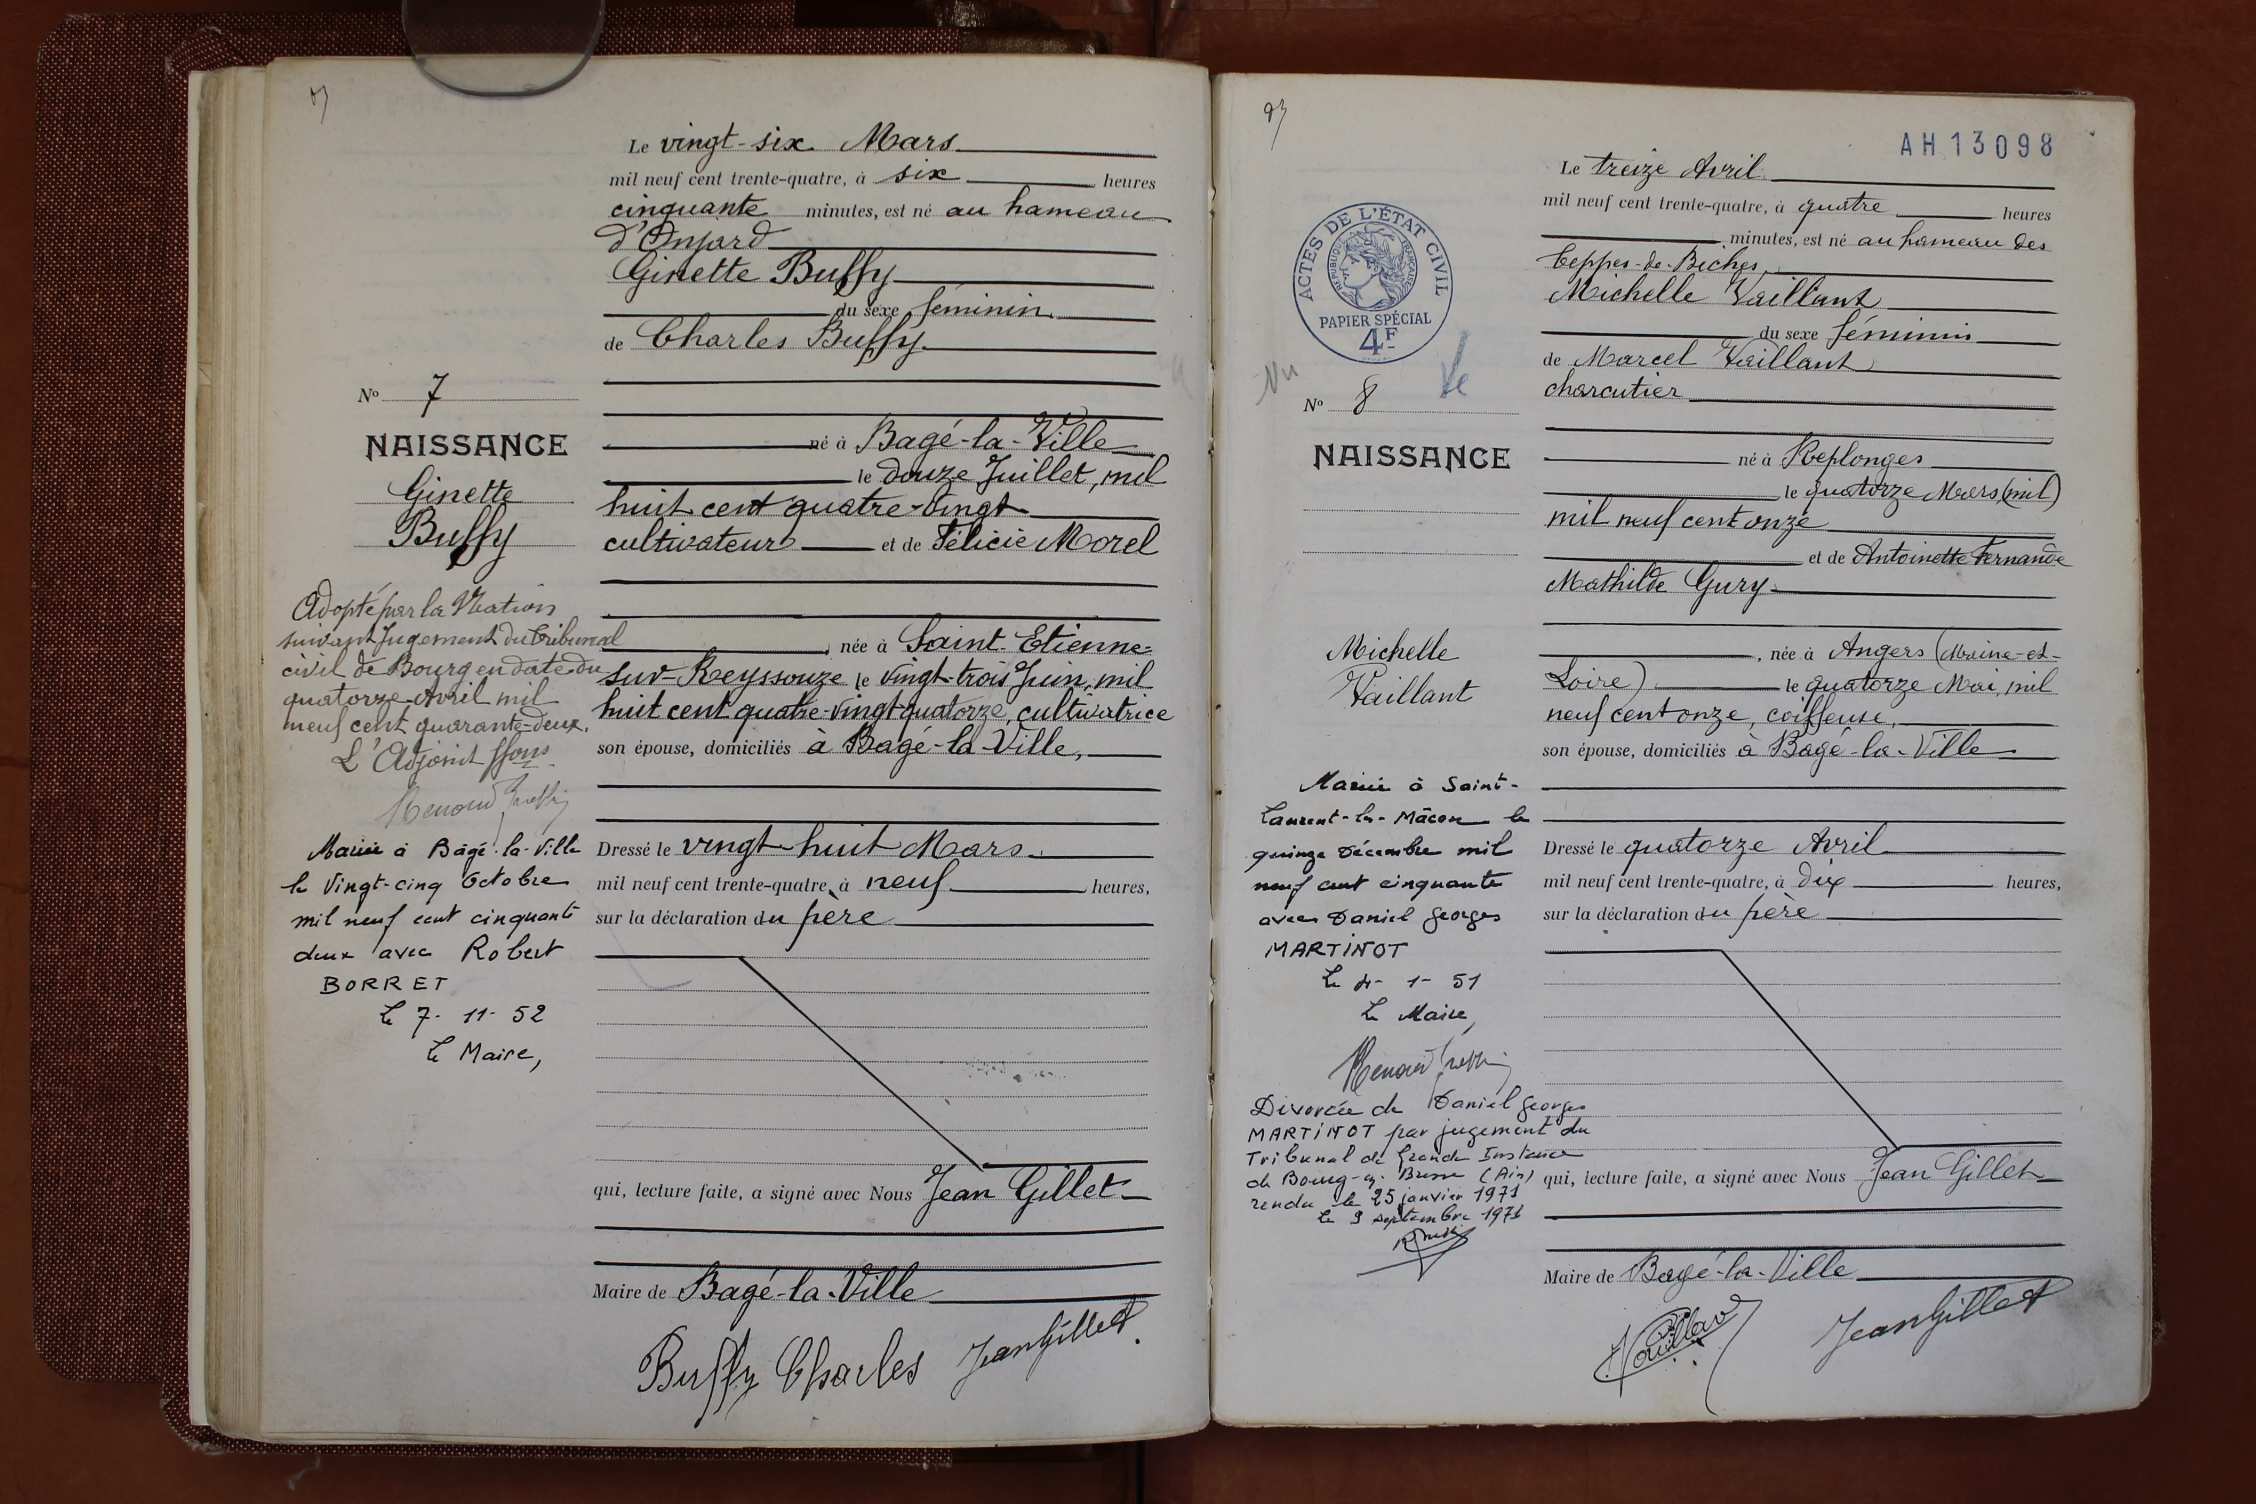 Le vingt-six Mars
mil neuf cent trente-quatre, à six heures
cinquante minutes, est né au hameau
d'Onjard
Ginette Buffy
du sexe féminin
de Charles Buffy
né à Bagé-la-Ville
le douze Juillet, mil
huit cent quatre-vingt
cultivateur et de Félicie Morel
, née à Saint-Etienne-
sur-Reyssouze le vingt-trois Juin, mil
huit cent quatre-vingt-quatorze, cultivatrice
son épouse, domiciliés à Bagé-la-Ville,
Dressé le vingt-huit Mars
mil neuf cent trente-quatre, à neuf heures,
sur la déclaration du père
qui, lecture faite, a signé avec Nous Jean Gillet
Maire de Bagé-la-Ville
Buffy Charles JeanGillet
No 7
NAISSANCE
Ginette
Buffy
Adopté par la Nation
suivant Jugement du Tribunal
civil de Bourg en date du
quatorze Avril mil
neuf cent quarante-deux.
L'Adjoint
Mariée à Bagé-la-Ville
le Vingt-cinq Octobre
mil neuf cent cinquante
deux avec Robert
BORRET
Le 7-11-52
Le Maire,
AH 13098
Le treize Avril
mil neuf cent trente-quatre, à quatre heures
minutes, est né au hameau des
Teppes-de-Biches
Michelle Vaillant
du sexe féminin
de Marcel Vaillant
charcutier
né à Replonges
le quatorze Mars (mil)
mil neuf cent onze
et de Antoinette Fernande
Mathilde Gury
, née à Angers (Maine-et-
Loire) le quatorze Mai, mil
neuf cent onze, coiffeuse,
son épouse, domiciliés à Bagé-la-Ville
Dressé le quatorze Avril
mil neuf cent trente-quatre, à dix heures,
sur la déclaration du père
qui, lecture faite, a signé avec Nous Jean Gillet
Maire de Bagé-la-Ville
JeanGillet
ACTES DE L'ÉTAT CIVIL
RÉPUBLIQUE FRANÇAISE
PAPIER SPÉCIAL
4F
Vu
No 8
NAISSANCE
Michelle
Vaillant
Mariée à Saint-
Laurent-les-Mâcon le
quinze Décembre mil
neuf cent cinquante
avec Daniel Georges
MARTINOT
Le 4-1-51
Le Maire,
Divorcée de Daniel Georges
MARTINOT par jugement du
Tribunal de Grande Instance
de Bourg-en-Bresse (Ain)
rendu le 25 janvier 1971
Le 9 septembre 1971